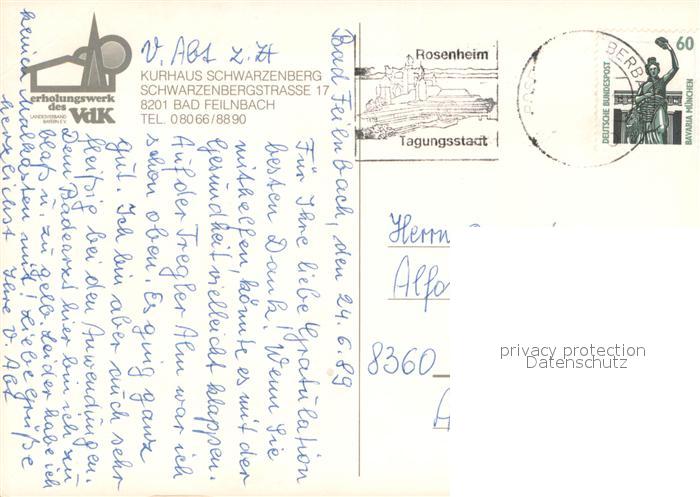 V. Abt z. Zt
KURHAUS SCHWARZENBERG
SCHWARZENBERGSTRASSE 17
8201 BAD FEILNBACH
TEL. 0 80 66 / 88 90
erholungswerk
des VdK
LANDESVERBAND
BAYERN E.V.
Bad Feilnbach, den 24.6.89
Für Ihre liebe Gratulation
besten Dank! Wenn Sie
mithelfen, könnte es mit der
Gesundheit vielleicht klappen.
Auf der Tregler Alm war ich
schon oben. Es ging ganz
gut. Ich bin aber auch sehr
fleißig bei den Anwendungen.
Dem Badearzt hier bin ich zu
blaß u. zu gelb. Leider habe ich
keinen mit! Liebe Grüße
herzlichst Ihre V. Abt
Rosenheim
Tagungsstadt
60
DEUTSCHE BUNDESPOST
BAVARIA MÜNCHEN
Herrn
Alfo
8360
privacy protection
Datenschutz